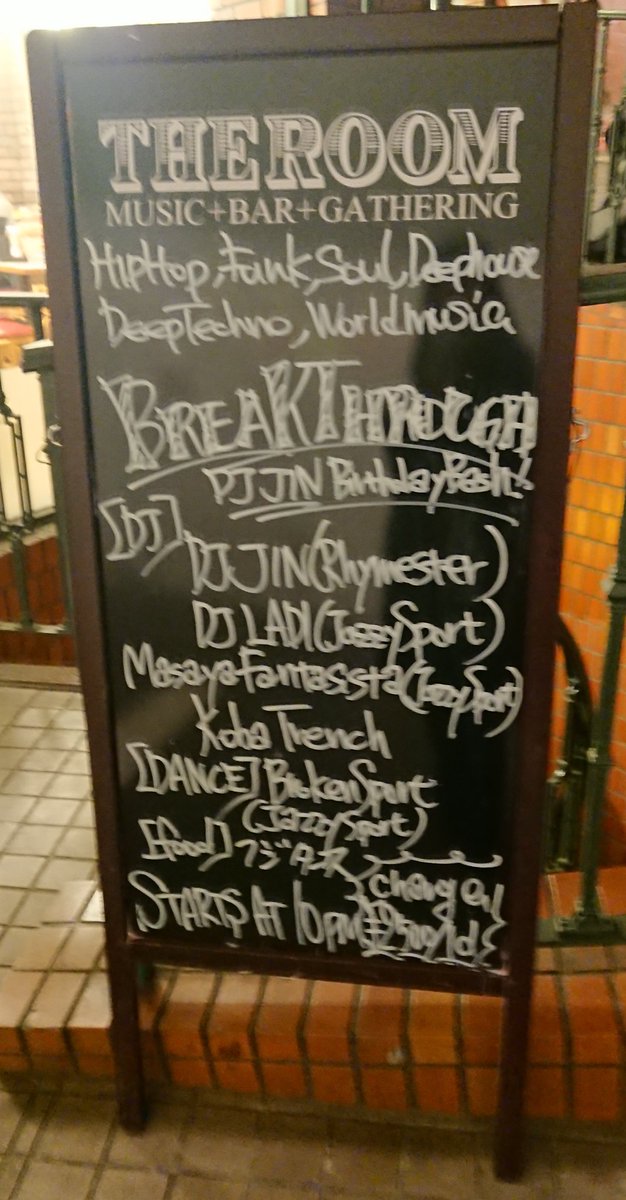 THE ROOM
MUSIC+BAR+GATHERING
HipHop, Funk, Soul, Deephouse
DeepTechno, Worldmusic
BREAKTHROUGH
DJ JIN Birthday Bash!
[DJ]
DJ JIN (Rhymester)
DJ LADI (Jazzy Sport)
Masaya Fantasista (Jazzy Sport)
Koba Trench
[DANCE] Broken Sport
(Jazzy Sport)
[food] フジタース
charge
STARTS AT 10PM ¥2500/1d